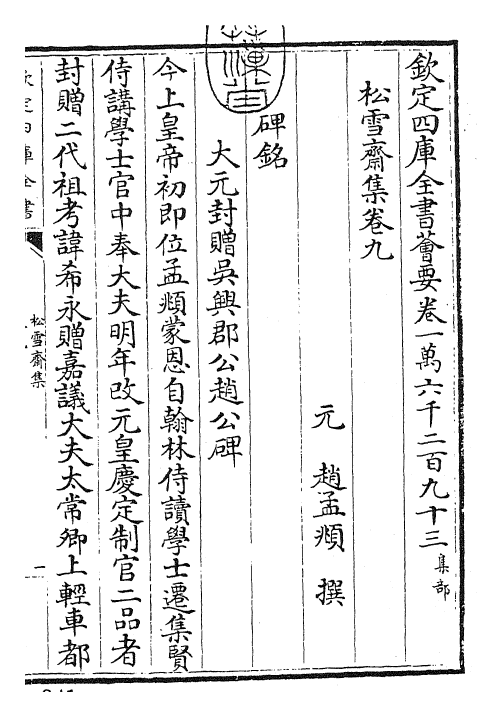 欽定四庫全書薈要卷一萬六千二百九十三 集部
松雪齋集卷九
元 趙孟頫 撰
碑銘
大元封贈吳興郡公趙公碑
今上皇帝初即位孟頫蒙恩自翰林侍讀學士遷集賢
侍講學士官中奉大夫明年改元皇慶定制官二品者
封贈二代祖考諱希永贈嘉議大夫太常卿上輕車都
欽定四庫全書
松雪齋集
一